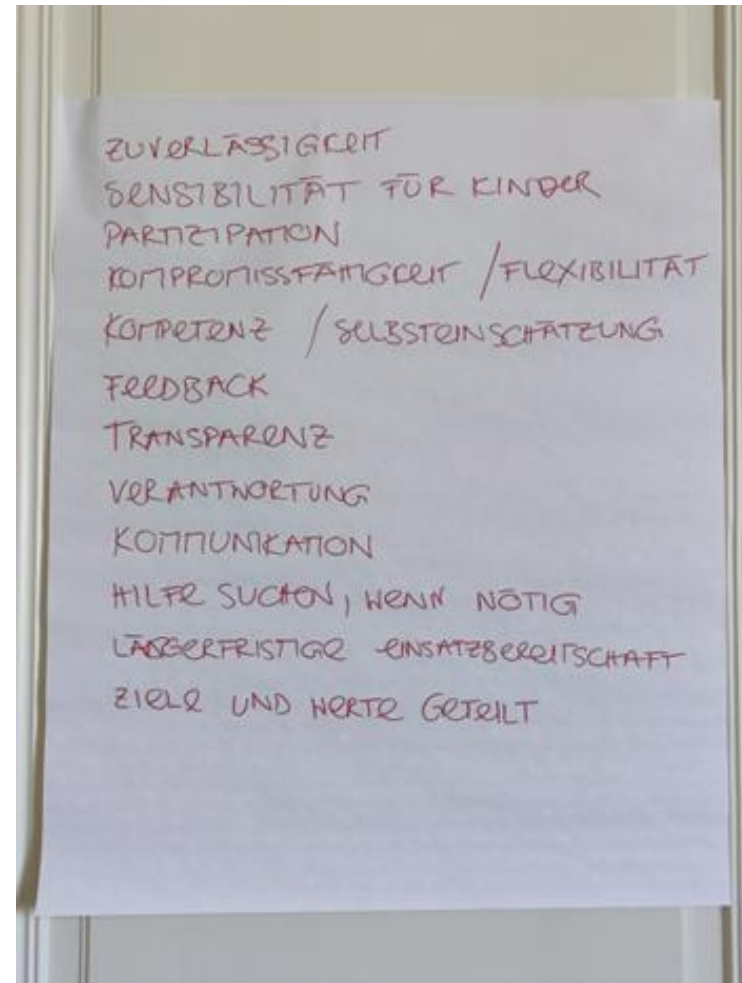 ZUVERLÄSSIGKEIT
SENSIBILITÄT FÜR KINDER
PARTIZIPATION
KOMPROMISSFÄHIGKEIT / FLEXIBILITÄT
KOMPETENZ / SELBSTEINSCHÄTZUNG
FEEDBACK
TRANSPARENZ
VERANTWORTUNG
KOMMUNIKATION
HILFE SUCHEN, WENN NÖTIG
LÄNGERFRISTIGE EINSATZBEREITSCHAFT
ZIELE UND WERTE GETEILT